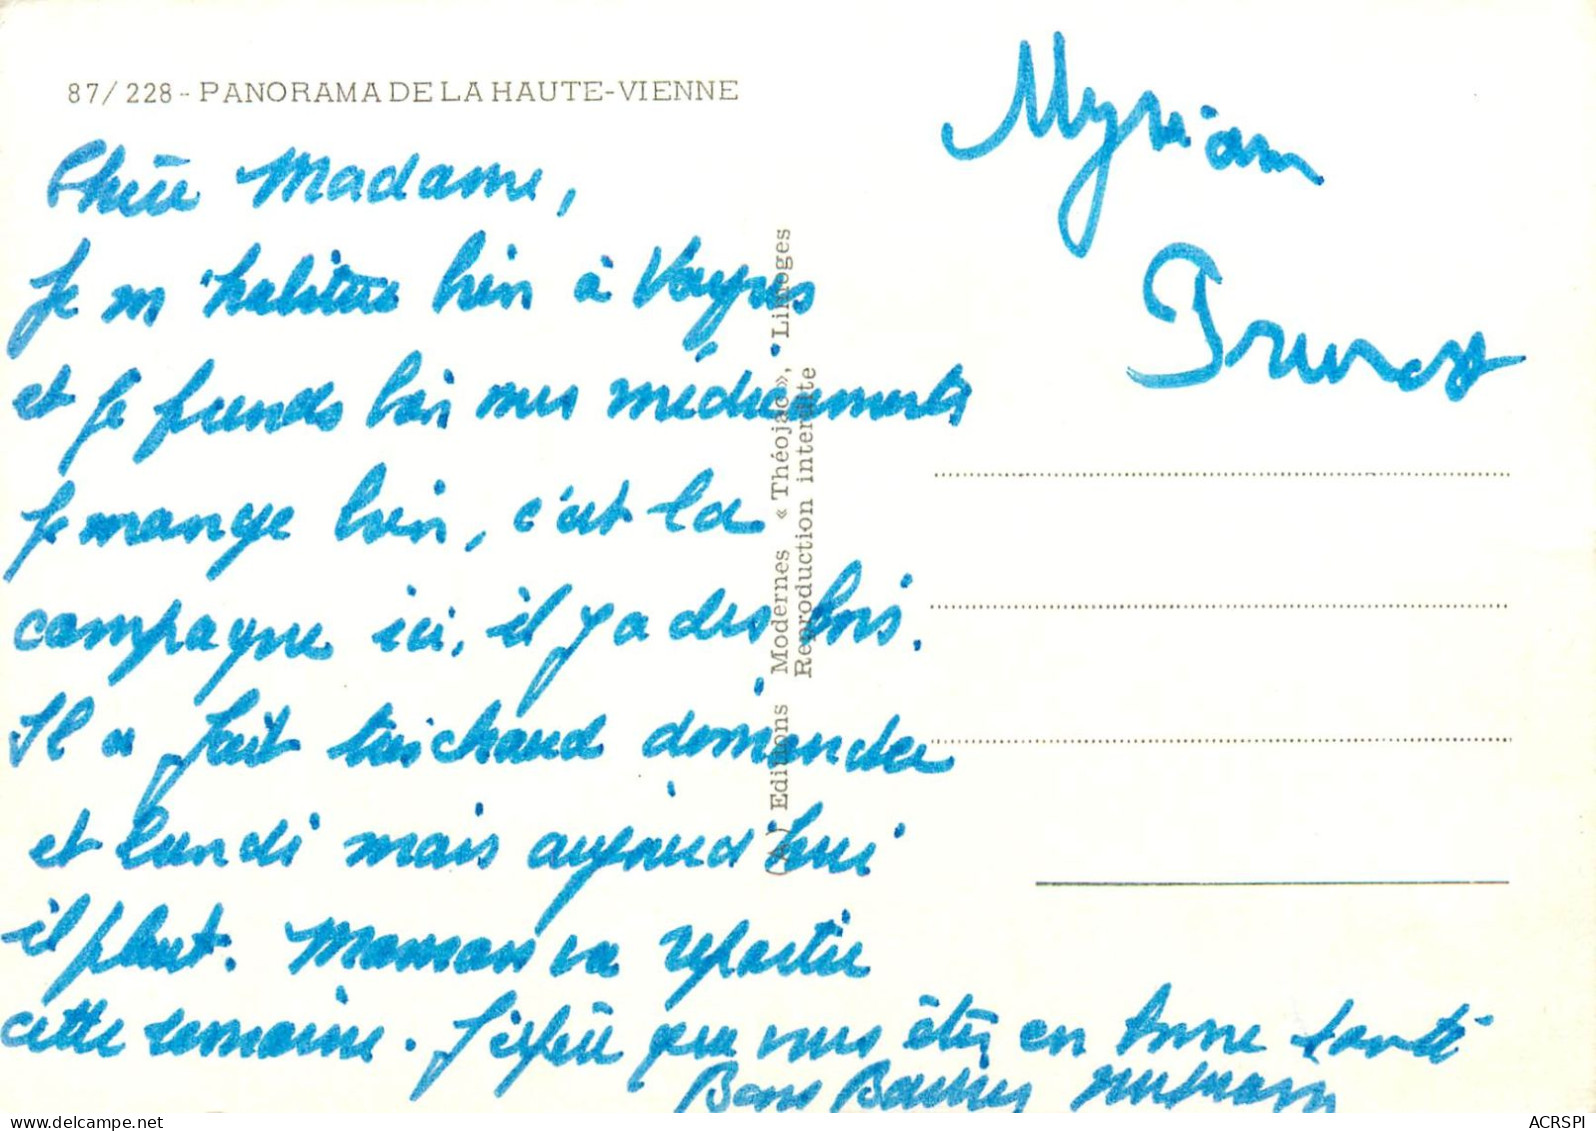 87/228 - PANORAMA DE LA HAUTE-VIENNE
Chère Madame,
Je m'habitue bien à Vayres
et je prends bien mes médicaments
je mange bien, c'est la
campagne ici, il y a des bois.
Il a fait très chaud dimanche
et lundi mais aujourd'hui
il pleut. Maman va repartir
cette semaine. J'espère que vous êtes en bonne santé
Bons Baisers Myriam
Myriam
(A) Editions Modernes « Théojac », Limoges
Reproduction interdite
ACRSPI